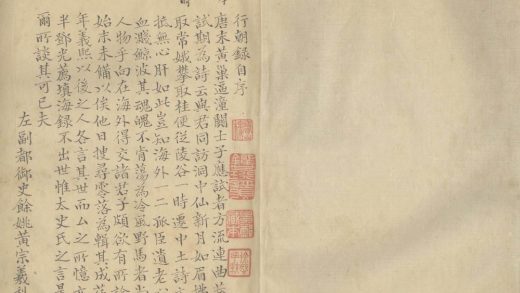 行朝録自序
唐末黃巢逼潼關士子應試者方流連曲
試期為詩云與君同訪洞中仙新月如眉拂
取常娥攀取桂便從陵谷一時遷中土詩文
抵無心肝如此豈知海外一二孤臣遺老
血濺鯨波其魂魄不肯蕩為冷風野馬者尚
人物乎向在海外得交諸君子頗欲有所論
始末未備以俟他日搜尋零落為輯其成
年義熙以後之人各言其世而厶之所憶亦
半鄧光薦填海録不出世惟太史氏之言是
爾所談其可已夫
左副都御史餘姚黃宗羲